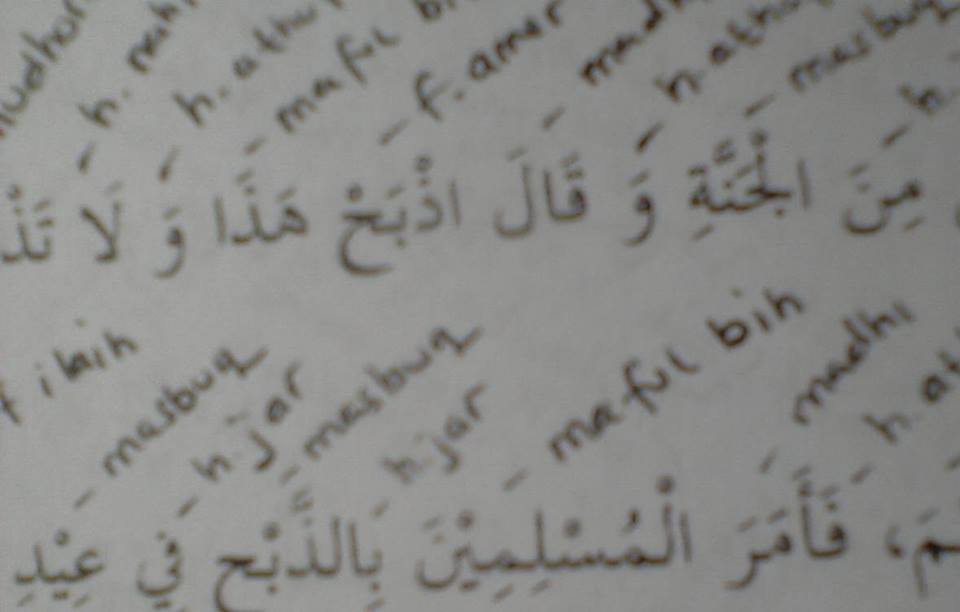 h.
h. athaf
maful bih
f. amer
madhi
h. athaf
masbuq
h.
مِنَ الْجَنَّةِ وَ قَالَ اذْبَحْ هَذَا وَ لَا
f ilaih
masbuq
h. jar
masbuq
h. jar
maful bih
madhi
h. at
فَأَمَرَ الْمُسْلِمِيْنَ بِالذَّبْحِ فِي عِيْدِ